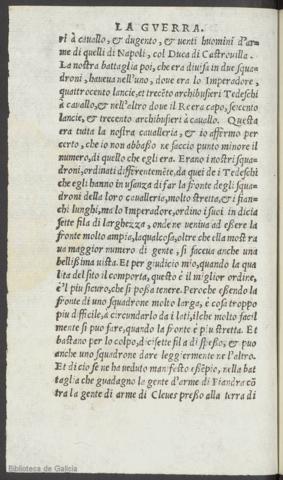 LA GVERRA.
ri à cauallo, & dugento, & uenti huomini d'ar=
me di quelli di Napoli, col Duca di Castrouilla.
La nostra battaglia poi, che era diuisa in due squa=
droni, haueua nell'uno, doue era lo Imperadore,
quattrocento lancie, et trecẽto archibusieri Tedeschi
à cauallo, & nell'altro doue il Re era capo, seicento
lancie, & trecento archibusieri à cauallo. Questa
era tutta la nostra caualleria, & io affermo per
certo, che io non abbaßo ne faccio punto minore il
numero, di quello che egli era. Erano i nostri squa=
droni, ordinati differentemẽte, da quei de i Tedeschi
che egli hanno in usanza di far la fronte degli squa=
droni della loro caualleria, molto stretta, & i fian=
chi lunghi, ma lo Imperadore, ordino i suoi in dicia
sette fila di larghezza, onde ne ueniua ad eßere la
fronte molto ampia, laqual cosa, oltre che ella mostra
ua maggior numero di gente, si faceua anche una
bellißima uista. Et per giudicio mio, quando la qua
lita del sito il comporta, questo è il miglior ordine,
è'l piu sicuro, che si poßa tenere. Peroche eßendo la
fronte di uno squadrone molto larga, è cosa troppo
piu difficile, à circundarlo da i lati, ilche molto facil
mente si puo fare, quando la fronte è piu stretta. Et
bastano per lo colpo, dicisette fila di speßo, & puo
anche uno squadrone dare leggiermente ne l'altro.
Et di cio se ne ha ueduto manifesto eßẽpio, nella bat
taglia che guadagno la gente d'arme di Fiandra cõ
tra la gente di arme di Cleues preßo alla terra di
Biblioteca de Galicia